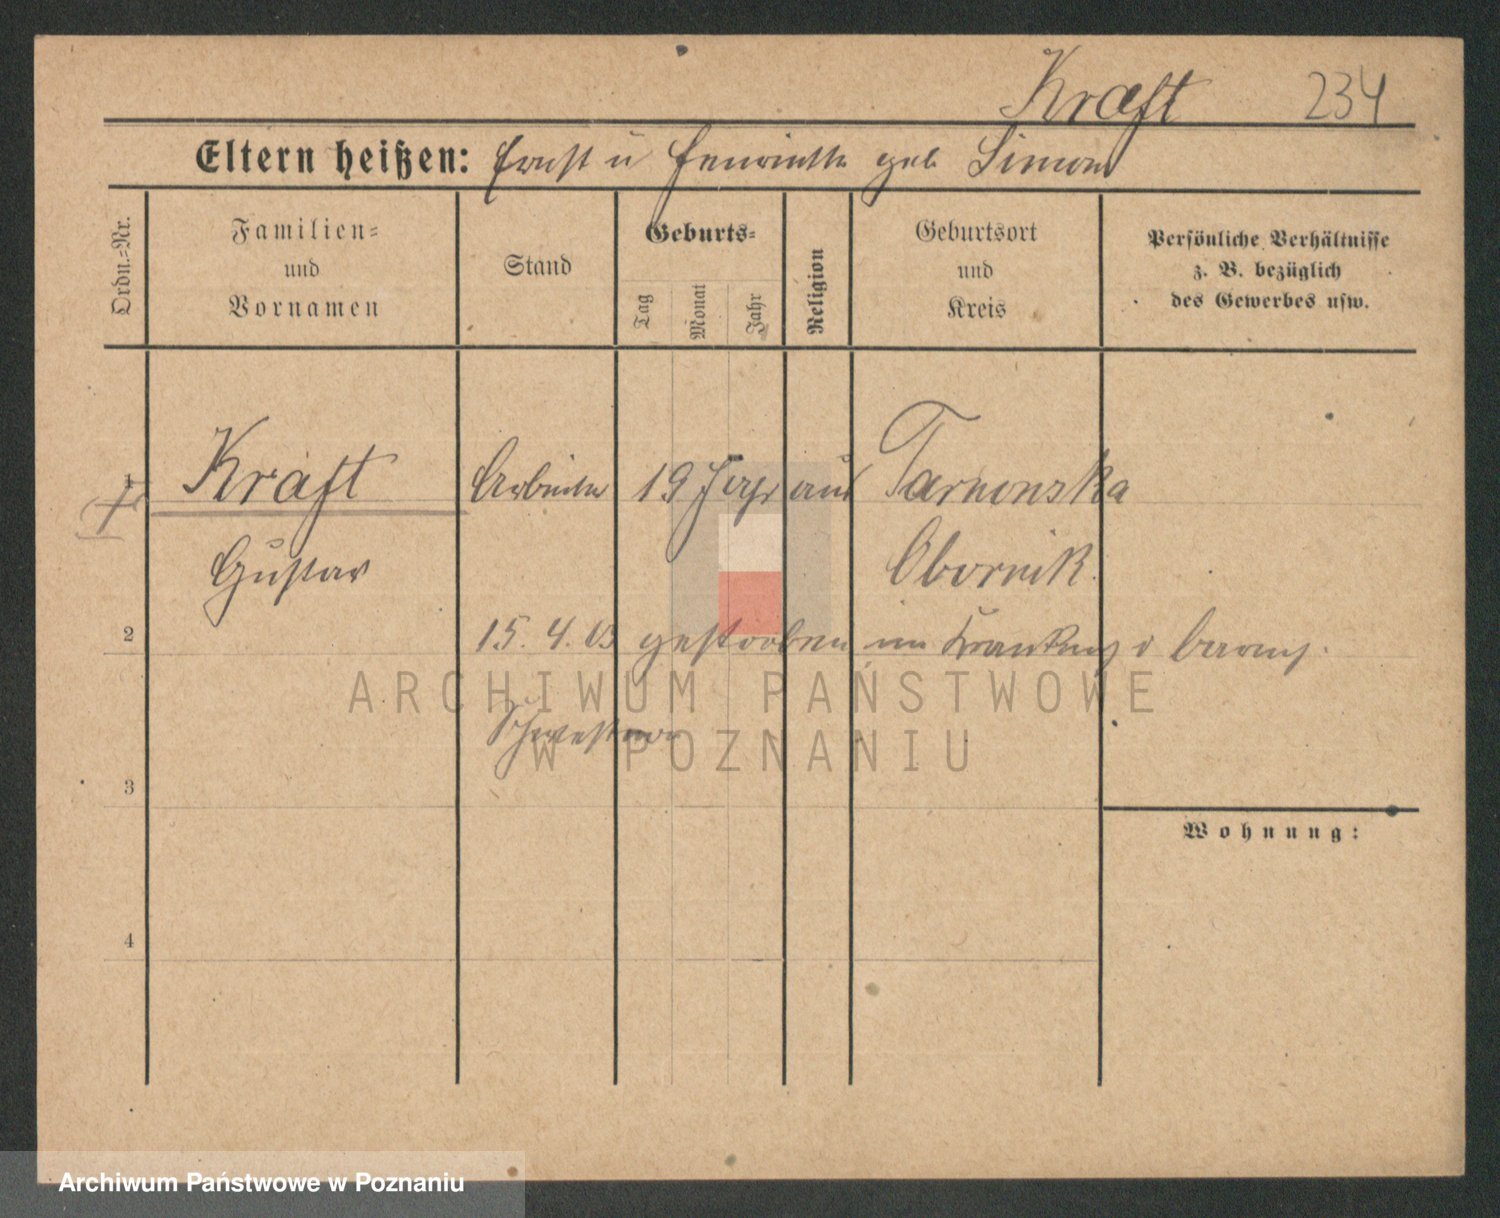 Kraft 234
Eltern heißen: Ernst u Henriette geb Simon
Ordn.-Nr.
Familien-
und
Vornamen
Stand
Geburts-
Tag
Monat
Jahr
Religion
Geburtsort
und
Kreis
Persönliche Verhältnisse
z. B. bezüglich
des Gewerbes usw.
1 Kraft Arbeiter 19 Jahr aus Tarnowska
Gustav Obornik
2 15. 4. 03 gestorben im d barmh.
Schwestern
ARCHIWUM PAŃSTWOWE
W POZNANIU
3
Wohnung:
4
Archiwum Państwowe w Poznaniu